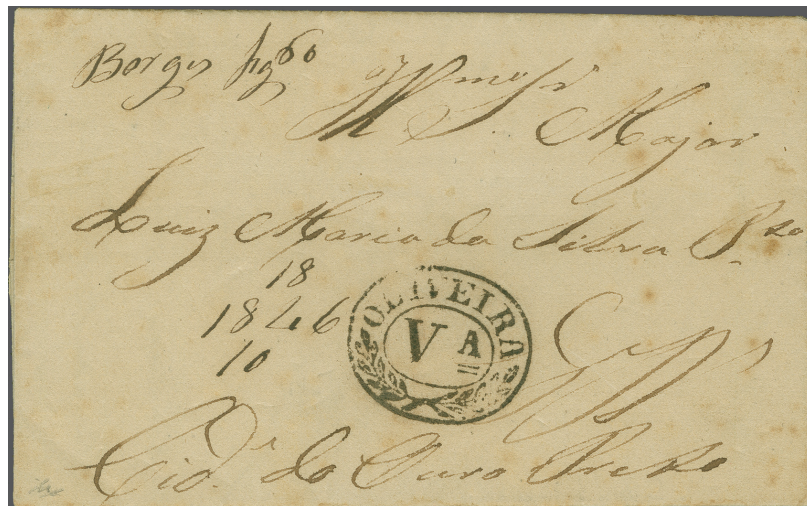 Borges pg 60
Illmo Sr
Major
Luiz Maria da Silva Pto
18
1846
10
OLIVEIRA
VA
Cide do Ouro Preto